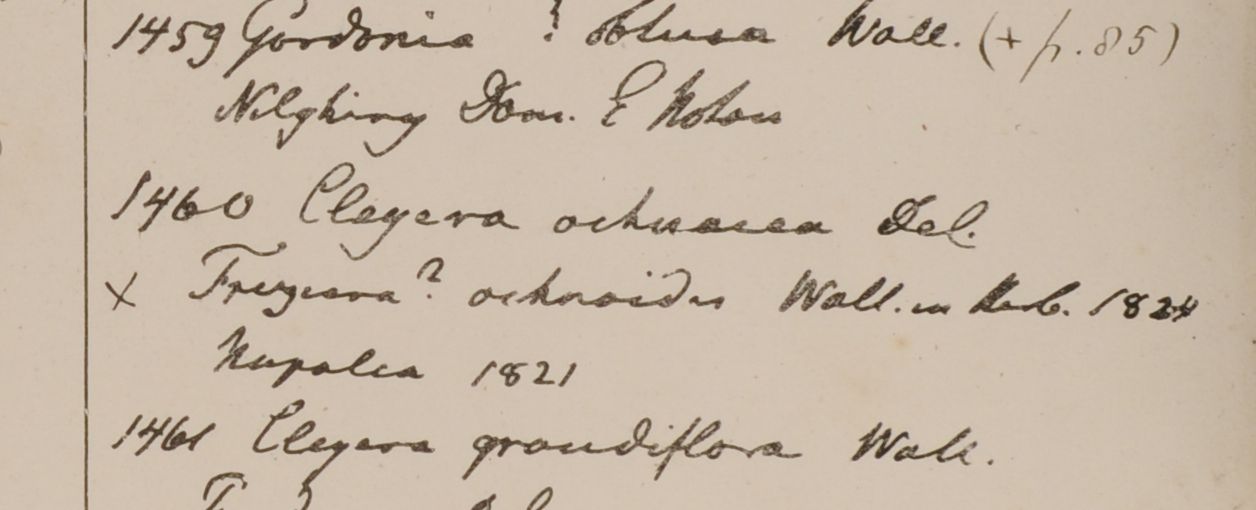 1459 Gordonia ? obtusa Wall. (+ p. 85)
Nilghiry Dom. E Noton
1460 Cleyera ochnacea Del.
x Freziera? ochnoides Wall. in Herb. 1824
Napalia 1821
1461 Cleyera grandiflora Wall.